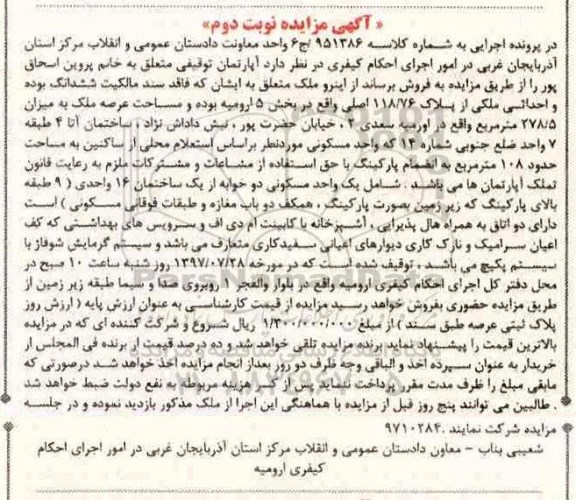 « آگهی مزایده نوبت دوم»
در پرونده اجرایی به شماره کلاسه ۹۵۱۳۸۶ /ج۶ واحد معاونت دادستان عمومی و انقلاب مرکز استان
آذربایجان غربی در امور اجرای احکام کیفری در نظر دارد آپارتمان توقیفی متعلق به خانم پروین اسحاق
پور را از طریق مزایده به فروش برساند از اینرو ملک متعلق به ایشان که فاقد سند مالکیت ششدانگ بوده
و احداثی ملکی از پلاک ۱۱۸/۷۶ اصلی واقع در بخش ۵ ارومیه بوده و مساحت عرصه ملک به میزان
۲۷۸/۵ مترمربع واقع در اورمیه سعدی ۲ ، خیابان حضرت پور ، نبش داداش نژاد ، ساختمان آنا ۴ طبقه
۷ واحد ضلع جنوبی شماره ۱۴ که واحد مسکونی موردنظر براساس استعلام محلی از ساکنین به مساحت
حدود ۱۰۸ مترمربع به انضمام پارکینگ با حق استفاده از مشاعات و مشترکات ملزم به رعایت قانون
تملک آپارتمان ها می باشد . شامل یک واحد مسکونی دو خوابه از یک ساختمان ۱۶ واحدی ( ۹ طبقه
بالای پارکینگ که زیر زمین بصورت پارکینگ ، همکف دو باب مغازه و طبقات فوقانی مسکونی ) است
دارای دو اتاق به همراه هال پذیرایی ، آشپزخانه با کابینت ام دی اف و سرویس های بهداشتی که کف
اعیان سرامیک و نازک کاری دیوارهای اعیانی سفیدکاری متعارف می باشد و سیستم گرمایش شوفاژ با
سیستم پکیج می باشد ، توقیف شده است که در مورخه ۱۳۹۷/۰۷/۲۸ روز شنبه ساعت ۱۰ صبح در
محل دفتر کل اجرای احکام کیفری ارومیه واقع در بلوار والفجر ۱ روبروی صدا و سیما طبقه زیر زمین از
طریق مزایده حضوری بفروش خواهد رسید مزایده از قیمت کارشناسی به عنوان ارزش پایه ( ارزش روز
پلاک ثبتی عرصه طبق سند ) از مبلغ ۱/۳۰۰/۰۰۰/۰۰۰ ریال شروع و شرکت کننده ای که در مزایده
بالاترین قیمت را پیشنهاد نماید برنده مزایده تلقی خواهد شد و ده درصد قیمت از برنده فی المجلس از
خریدار به عنوان سپرده اخذ و الباقی وجه ظرف دو روز بعداز انجام مزایده اخذ خواهد شد درصورتی که
مابقی مبلغ را ظرف مدت مقرر پرداخت ننماید پس از کسر هزینه مربوطه به نفع دولت ضبط خواهد شد
. طالبین می توانند پنج روز قبل از مزایده با هماهنگی این اجرا از ملک مذکور بازدید نموده و در جلسه
مزایده شرکت نمایند .۹۷۱۰۲۸۴
شعیبی بناب - معاون دادستان عمومی و انقلاب مرکز استان آذربایجان غربی در امور اجرای احکام
کیفری ارومیه